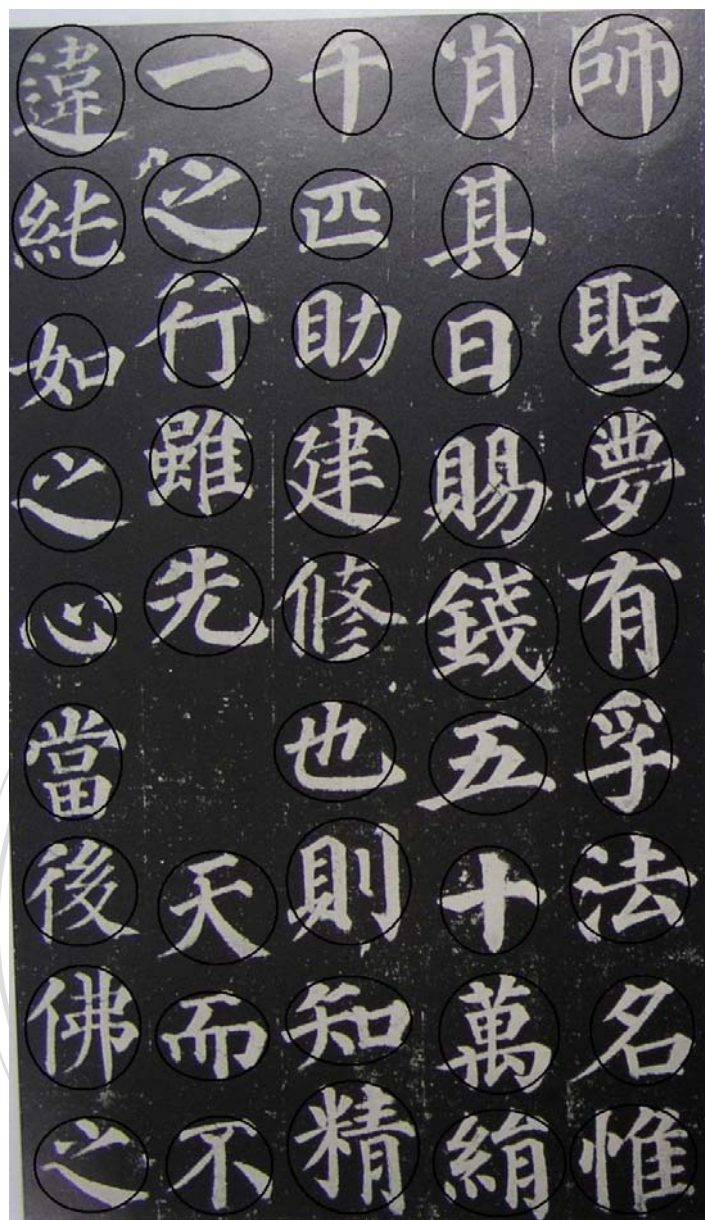 師 聖夢有孚法名惟
肖其日賜錢五十萬絹
千匹助建修也則知精
一之行雖先 天而不
違純如之心當後佛之